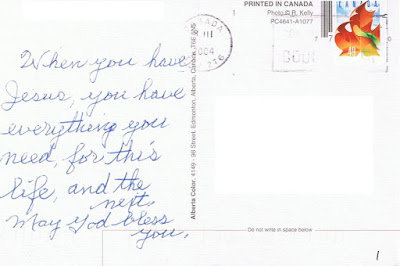 When you have
Jesus, you have
everything you
need, for this
life, and the
next.
May God bless
you.
Alberta Color, 4149 - 98 Street, Edmonton, Alberta, Canada, T6E 5N5
PRINTED IN CANADA
Photo © R. Kelly
PC4641-A1077
CANADA
III
2004
T6
CANADA
Do not write in space below
1